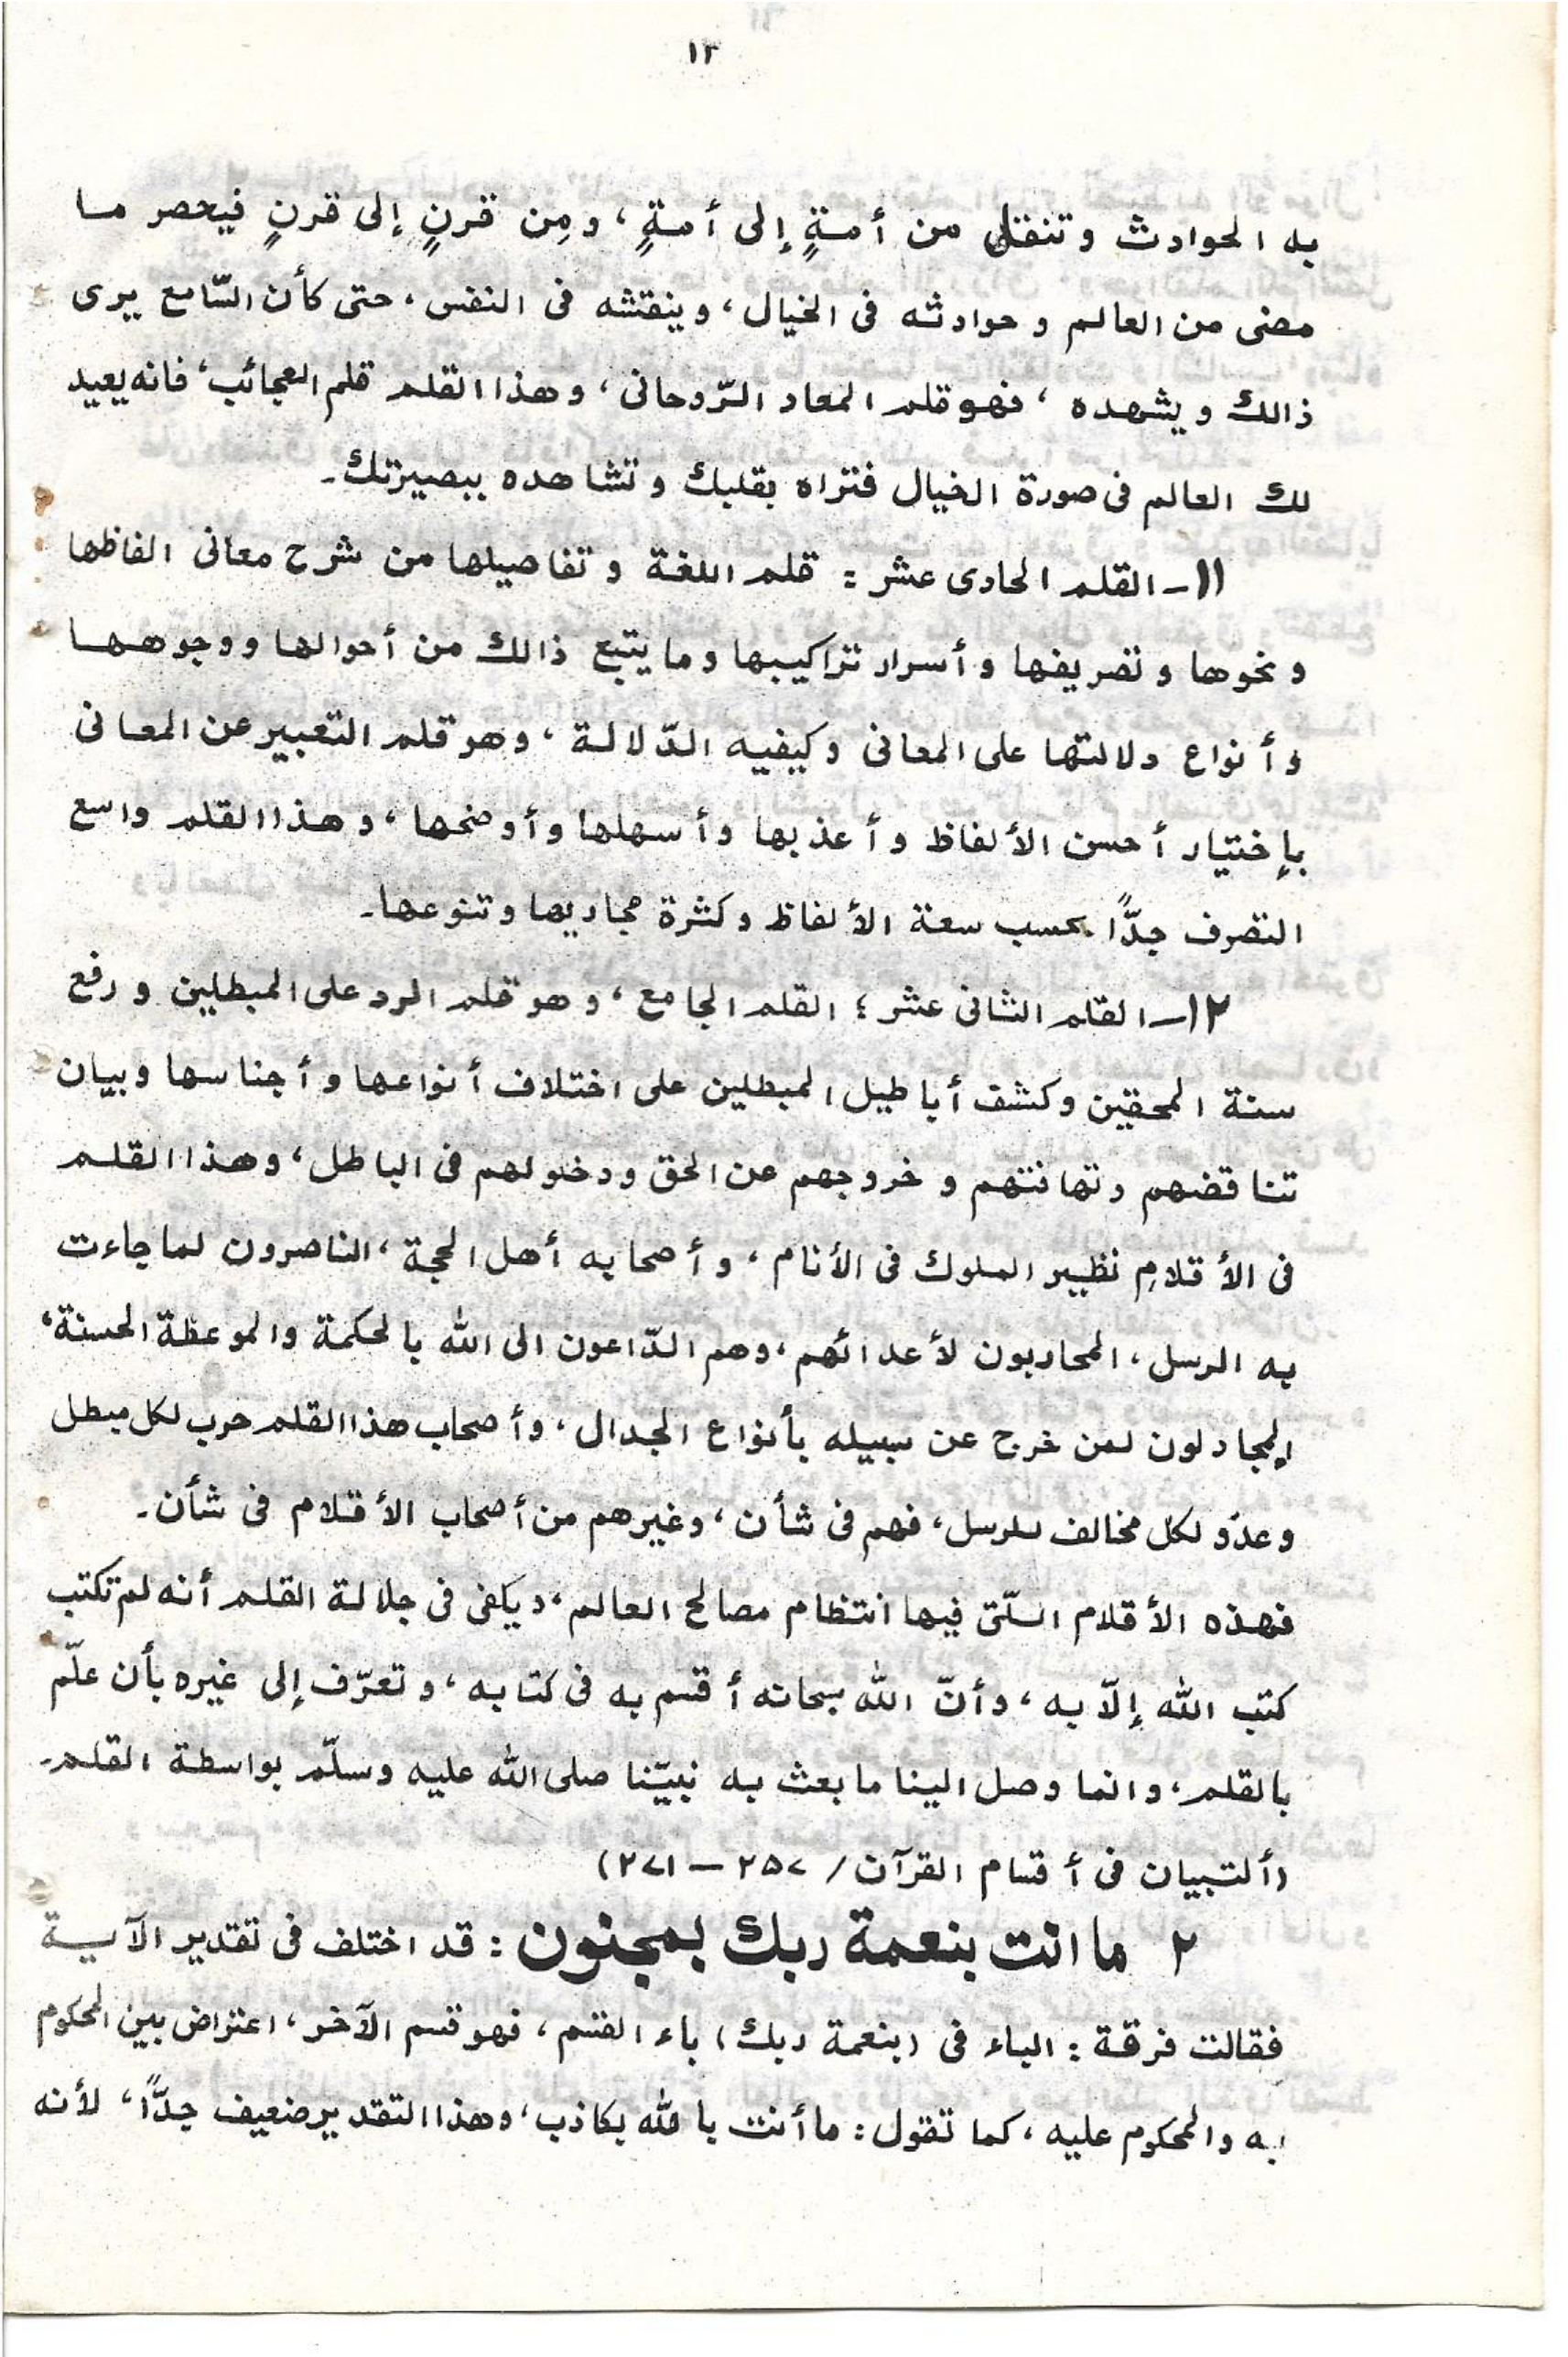 ١٣
به الحوادث وتنقل من أمةٍ إلى أمةٍ، ومِن قرنٍ إلى قرنٍ فيحصر ما
مضى من العالم وحوادثه فى الخيال، وينقشه فى النفس، حتى كأن السّامع يرى
ذالك ويشهده، فهو قلم المعاد الرّوحانى، وهذا القلم قلم العجائب، فانه يعيد
لك العالم فى صورة الخيال فتراه بقلبك وتشاهده ببصيرتك۔
١١- القلم الحادى عشر : قلم اللغة وتفاصيلها من شرح معانى الفاظها
ونحوها وتصريفها وأسرار تراكيبها وما يتبع ذالك من أحوالها ووجوهها
وأنواع دلالتها على المعانى وكيفيه الدّلالة، وهو قلم التعبير عن المعانى
بإختيار أحسن الألفاظ وأعذبها وأسهلها وأوضحها، وهذا القلم واسع
التصرف جدًّا بحسب سعة الألفاظ وكثرة مجاريها وتنوعها۔
١٢- القلم الثانى عشر : القلم الجامع، وهو قلم الرد على المبطلين ورفع
سنة المحقين وكشف أباطيل المبطلين على اختلاف أنواعها وأجناسها وبيان
تناقضهم وتهافتهم وخروجهم عن الحق ودخولهم فى الباطل، وهذا القلم
فى الأقلامِ نظير الملوك فى الأنام، وأصحابه أهل الحجة، الناصرون لما جاءت
به الرسل، المحاربون لأعدائهم، وهم الدّاعون الى الله بالحكمة والموعظة الحسنة،
المجادلون لمن خرج عن سبيله بأنواع الجدال، وأصحاب هذا القلم حرب لكل مبطل
وعدّو لكل مخالف للرسل، فهم فى شأن، وغيرهم من أصحاب الأقلام فى شأن۔
فهذه الأقلام الّتى فيها انتظام مصالح العالم، ويكفى فى جلالة القلم أنه لم تكتب
كتب الله إلّا به، وأنّ الله سبحانه أقسم به فى كتابه، وتعرّف إلى غيره بأن علّم
بالقلم، وانما وصل الينا ما بعث به نبيّنا صلى الله عليه وسلّم بواسطة القلم۔
(ألتبيان فى أقسام القرآن / ٢٥٧ — ٢٧١)
٢ ما انت بنعمة ربك بمجنون : قد اختلف فى تقدير الآية
فقالت فرقة : الباء فى (بنعمة ربك) باء القسم، فهو قسم الآخر، اعتراض بين المحكوم
به والمحكوم عليه، كما تقول : ما أنت بالله بكاذب، وهذا التقدير ضعيف جدًّا، لأنه